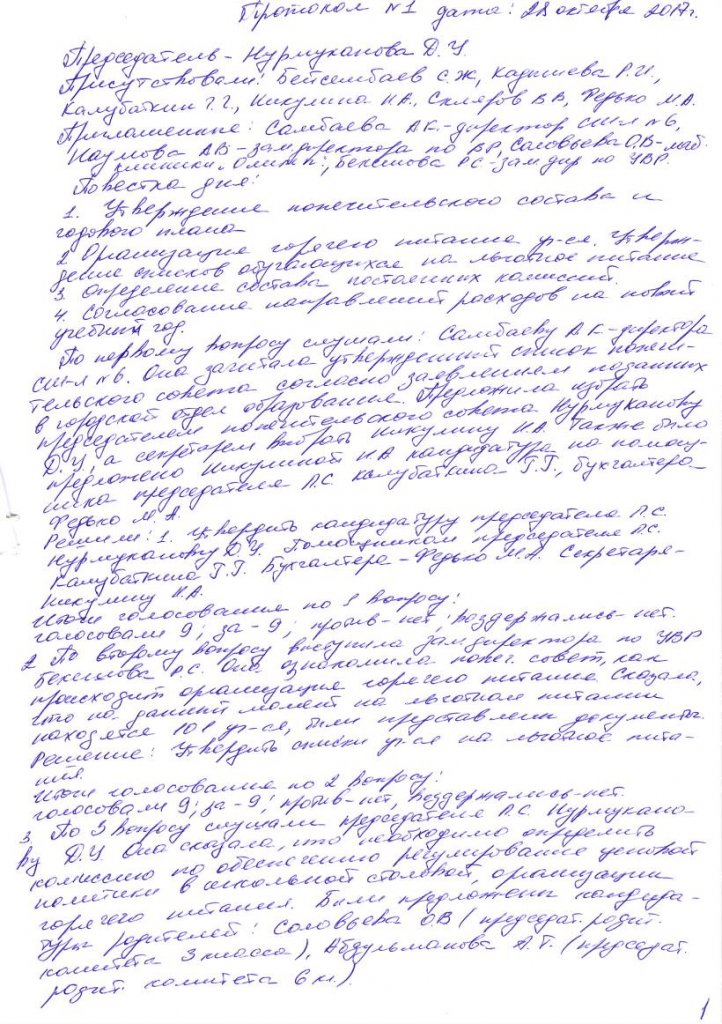 Протокол №1 дата: 28 октября 2017г.
Председатель - Нурмуканова Д.У.
Присутствовали: Бейсембаев С.Ж, Кадишева Р.И.,
Калубаткин Г.Г., Никулина Н.А., Скляров В В, Федько М.А.
Приглашенные: Самбаева А.К.-директор СШ-Л №6,
Наумова АВ-замдиректора по ВР, Соловьева О.В-
клиники „Олимп", Бекешова РС замдир по УВР.
Повестка дня:
1. Утверждение попечительского состава и
годового плана
2 Организация горячего питание уч-ся. Утверж-
дение списков обучающихся на льготное питание
3. Определение состава постоянных комиссий.
4. Согласование направлений расходов на новый
учебный год.
По первому вопросу слушали: Самбаеву А К-директора
СШ-Л №6. Она зачитала утвержденный список попечи-
тельского совета согласно заявлением поданных
в городской отдел образования. Предложила избрать
председателем попечительского совета Нурмуканову
Д.У, а секретарем выбрать Никулину Н.А. Также было
предложено Никулиной Н А кандидатура на помощ-
ника председателя П.С Калубаткина Г.Г., бухгалтера-
Федько М.А.
Решили: 1. Утвердить кандидатуру председателя П.С.
Нурмуканову Д.У. Помощником председателя П.С.
Калубаткина Г.Г. Бухгалтера - Федько М.А. Секретаря-
Никулину Н.А.
Итоги голосования по 1 вопросу:
голосовали 9; за-9; против-нет, воздержались-нет.
2 По второму вопросу выступила замдиректора по УВР
Бекешова Р.С. Она ознакомила попеч. совет, как
происходит организация горячего питание. Сказала,
что на данный момент на льготном питании
находятся 101 уч-ся, были представлены документы.
Решение: Утвердить списки уч-ся на льготное пита-
ния.
Итоги голосования по 2 вопросу:
голосовали 9; за-9; против-нет, воздержались-нет.
3. По 3 вопросу слушали председателя П.С. Нурмукано-
ву Д.У. Она сказала, что необходимо определить
комиссию по обеспечению регулирование ценовой
политики в школьной столовой, организации
горячего питания. Были предложены кандида-
туры родителей: Соловьева О.В (председат. родит.
комитета 3 класса), Абдульманова А.Т. (председат.
родит. комитета 6 кл.).
1